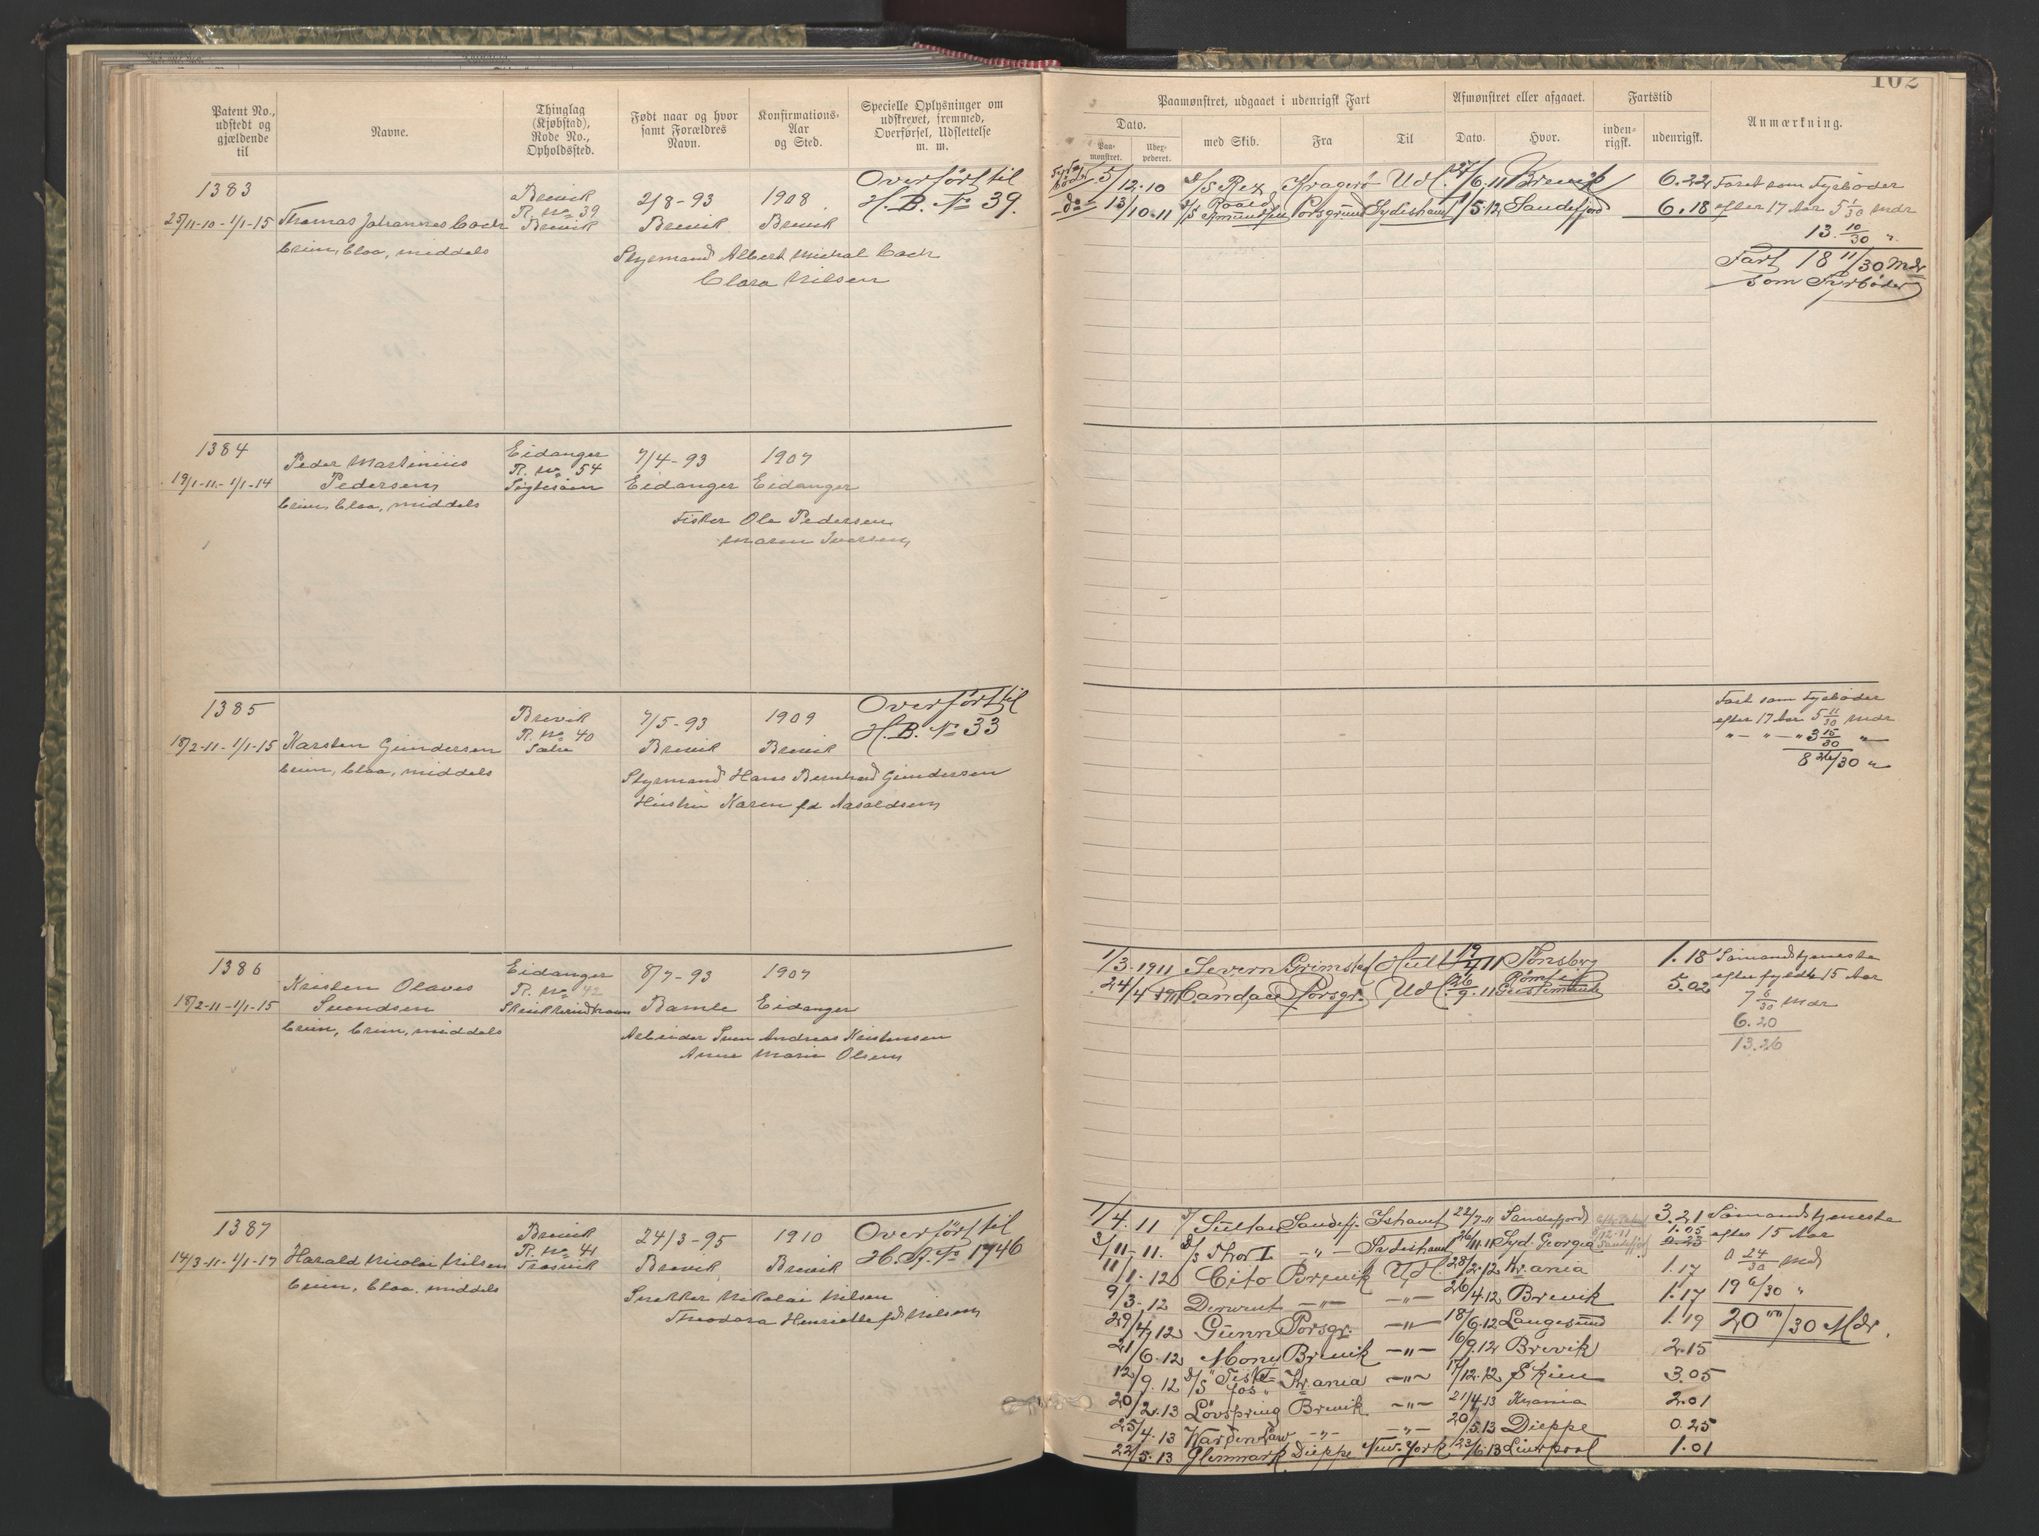 102
Patent No., udstedt og gjældende til
Navne.
Thinglag (Kjøbstad), Rode No., Opholdssted.
Født naar og hvor samt Forældres Navn.
Konfirmations-Aar og Sted.
Specielle Oplysninger om udskrevet, fremmed, Overførsel, Udslettelse m. m.
Paamønstret, udgaaet i udenrigsk Fart
Afmønstret eller afgaaet.
Fartstid
Anmærkning.
Dato.
Paamønstret.
Udexpederet.
med Skib.
Fra
Til
Dato.
Hvor.
indenrigsk.
udenrigsk.
1383
25/11-10-1/1-15
Thomas Johannes Coch
brun, blaa, middels
Brevik
R. No 39
Brevik
2/8-93
Brevik
1908
Brevik
Overført til
H.B. No 39.
Styrmand Albert Mickal Coch
Clara Nilsen
5/12-10 d/s Rex Kragerø Udl. 27/6.11 Brevik 6.22
do 13/10-11 d/s Roald Amundsen Porsgrund Sydishavet /5.12 Sandefjord 6.18
Faret som Fyrbøder
efter 17 Aar 5 1/30 Mdr
13 10/30 "
Fart 18 11/30 Mdr
som Fyrbøder
1384
19/1-11-1/1-14
Peder Martinius
Pedersen
brun, blaa, middels
Eidanger
R. No 54
7/4-93
Eidanger
1907
Eidanger
Fisker Ole Pedersen
Maren Iversen
1385
18/2-11-1/1-15
Karsten Gundersen
brun, blaa, middels
Brevik
R. No 40
7/5-93
Brevik
1909
Brevik
Overført til
H.B. No 33
Styrmand Hans Bernhard Gundersen
Hustru Karen fd Aasoldsen
Fart som Fyrbøder
efter 17 Aar 5 11/30 Mdr
" — " — " 3 15/30 "
8 26/30 "
1386
18/2-11-1/1-15
Kristen Olaves
Svendsen
brun, brun, middels
Eidanger
R. No 42
8/7-93
Bamle
1907
Eidanger
Arbeider Sven Andreas Kristensen
Anne Marie Olsen
1/3.1911 Severn Grimstad Hull 19/4 11 Tønsberg 1.18
24/4 1911 Candace Porsgr. Udl. 26/9.11 5.02
Sømandstjeneste
efter fyldte 15 Aar
7 6/30 Mdr
6.20
13.26
1387
14/3-11-1/1-17
Harald Nicolai Nilsen
brun, blaa, middels
Brevik
R. No 41
Trosvik
24/3-95
Brevik
1910
Brevik
Overført til
H. A. No 1746
Snekker Nikolai Nilsen
Theodora Henriette fd Nilsen
1/4.11 Sultan Sandefj. Ishavet 22/7-11 Sandefjord 3.21
2/11-11. d/s Thor I —"— Sydishavet 26/11.11 Syd. Georgia 1.05
11/1-12 Cito Brevik Udl 28/2.12 Kr.ania 1.17
9/3-12 Derwent —"— —"— 26/4.12 Brevik 1.17
29/4.12 Gunn Porsgr. —"— 18/6.12 Langesund 1.19
21/6.12 Mony Brevik —"— 6/9.12 Brevik 2.15
12/9.12 d/s Kr.ania —"— 17/12.12 Skien 3.05
20/2.13 Løvspring Brevik —"— 21/4.13 Kr.ania 2.01
25/4.13 —"— —"— 20/5.13 Dieppe 0.25
22/5.13 Glenmark Dieppe New-York 23/6.13 Liverpool 1.01
Sømandstjeneste
efter 15 Aar
0 24/30 Mdr
19 6/30 "
20 /30 Mdr.